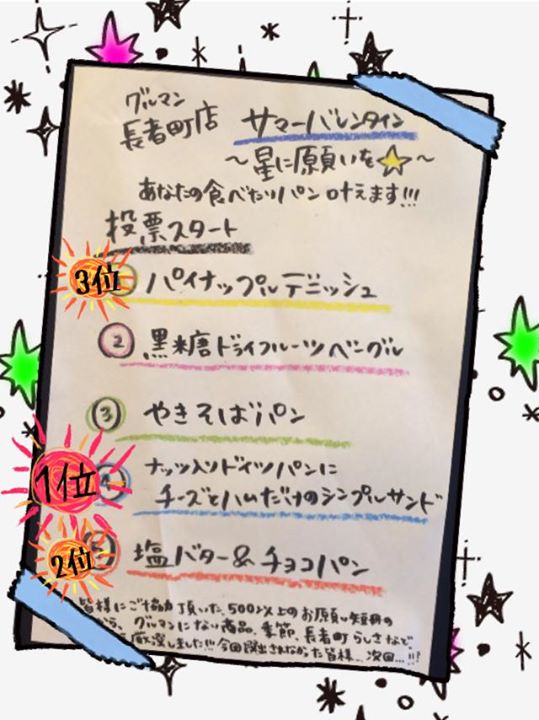 グルマン
長者町店 サマーバレンタイン
〜星に願いを☆〜
あなたの食べたいパン叶えます!!!
投票スタート
3位 パイナップルデニッシュ
② 黒糖ドライフルーツベーグル
③ やきそばパン
1位 ナッツ入りドイツパンに
チーズとハムだけのシンプルサンド
2位 塩バター&チョコパン
皆様にご協力頂いた、500以上のお願い短冊の
から、グルマンにない商品、季節、長者町らしさなど、
厳選しました!!! 今回選出されなかった皆様…次回…!!!